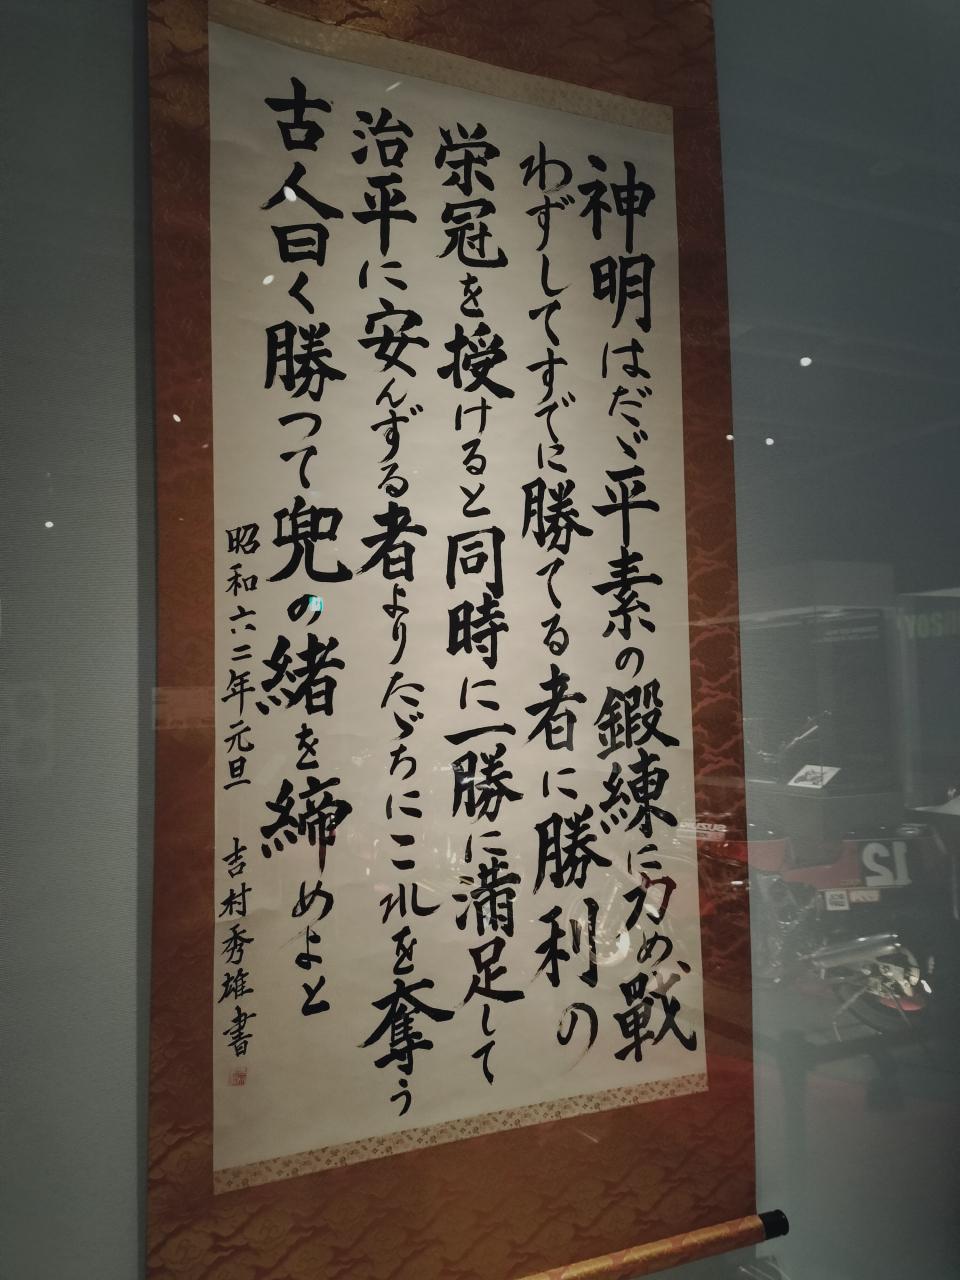 神明はだゞ平素の鍛練に力め、戰
わずしてすでに勝てる者に勝利の
栄冠を授けると同時に一勝に満足して
治平に安んずる者よりたゞちにこれを奪う
古人曰く勝つて兜の緒を締めよと
昭和六二年元旦　吉村秀雄書
12